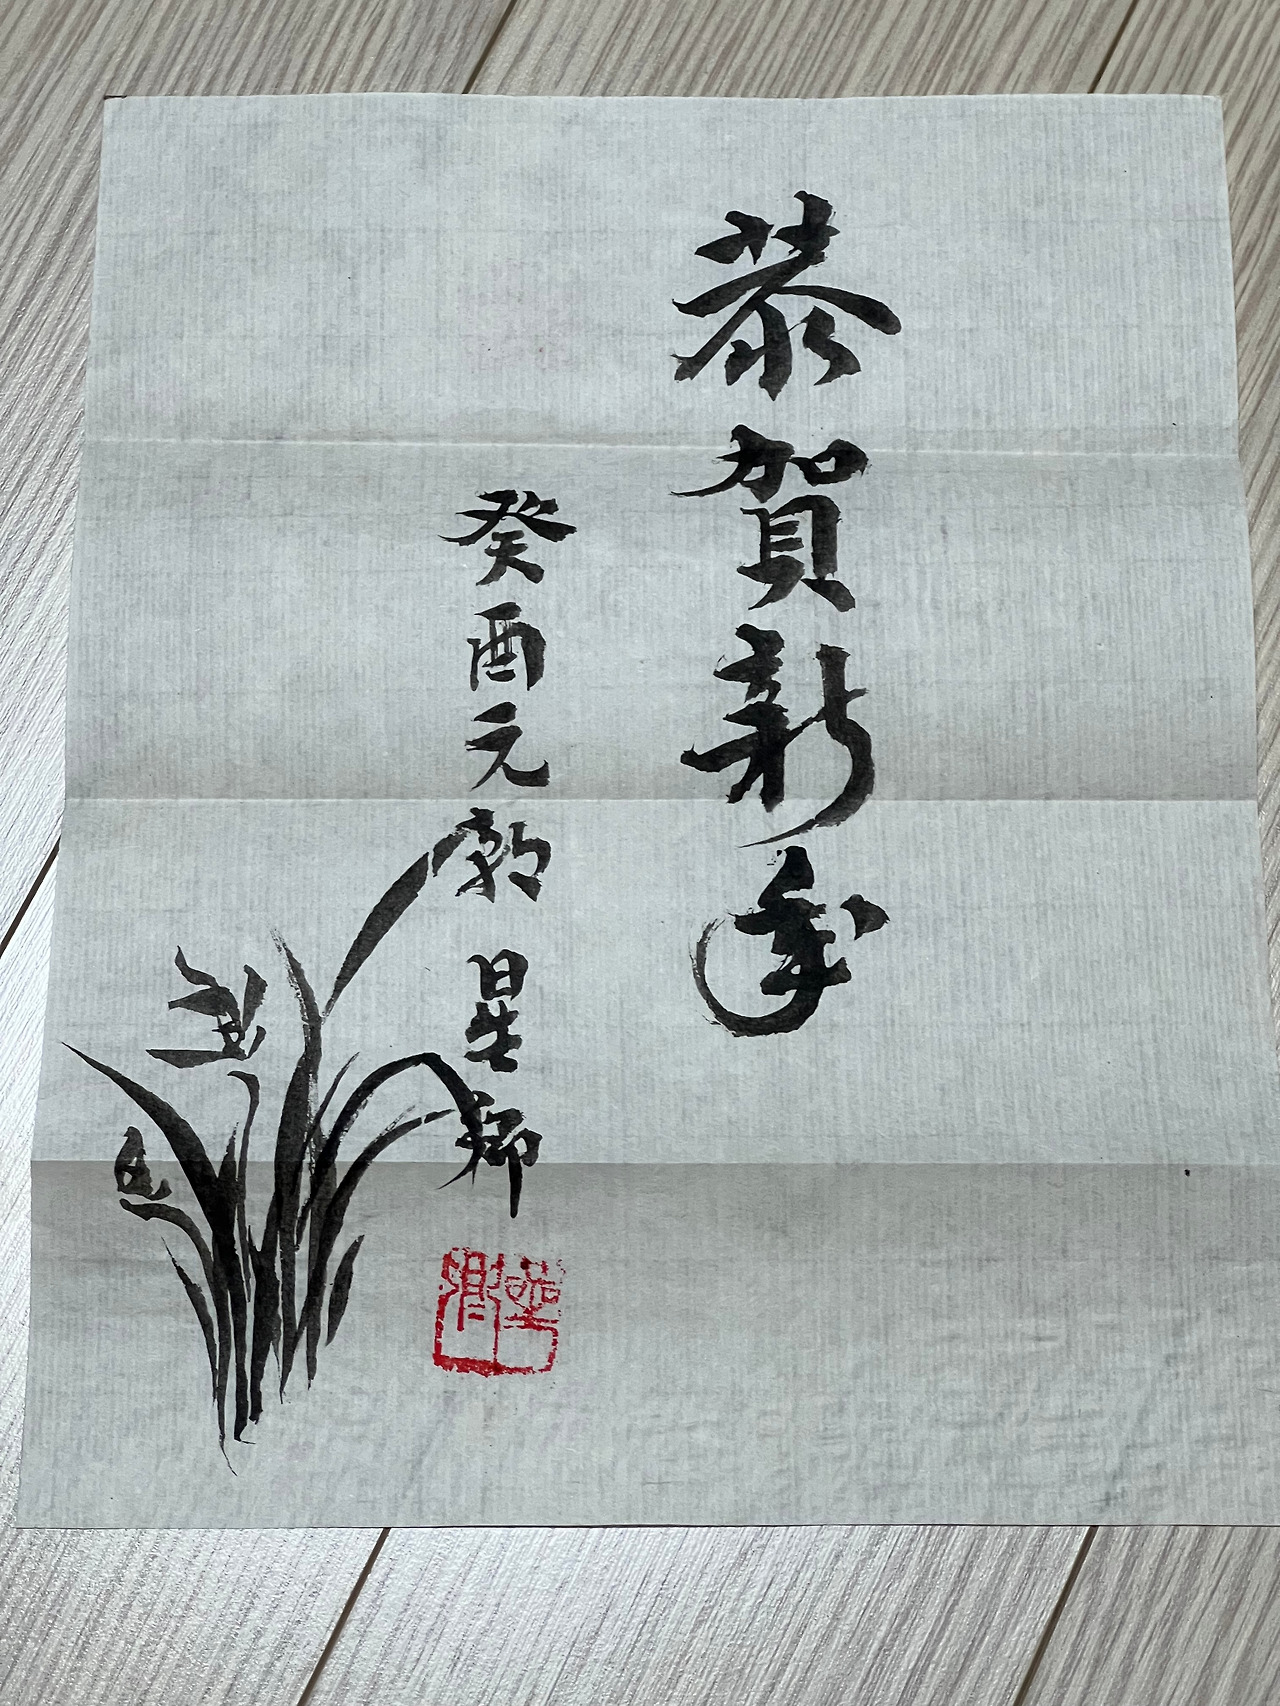 恭賀新年
癸酉元朝 星